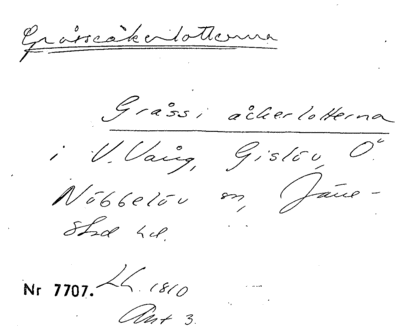 Gråssåkerlotterna
Gråss i åkerlotterna
i V. Vång, Gislöv, Ö.
Nöbbelöv sn, Järre-
stad hd.
Nr 7707. LL. 1810
Akt 3.